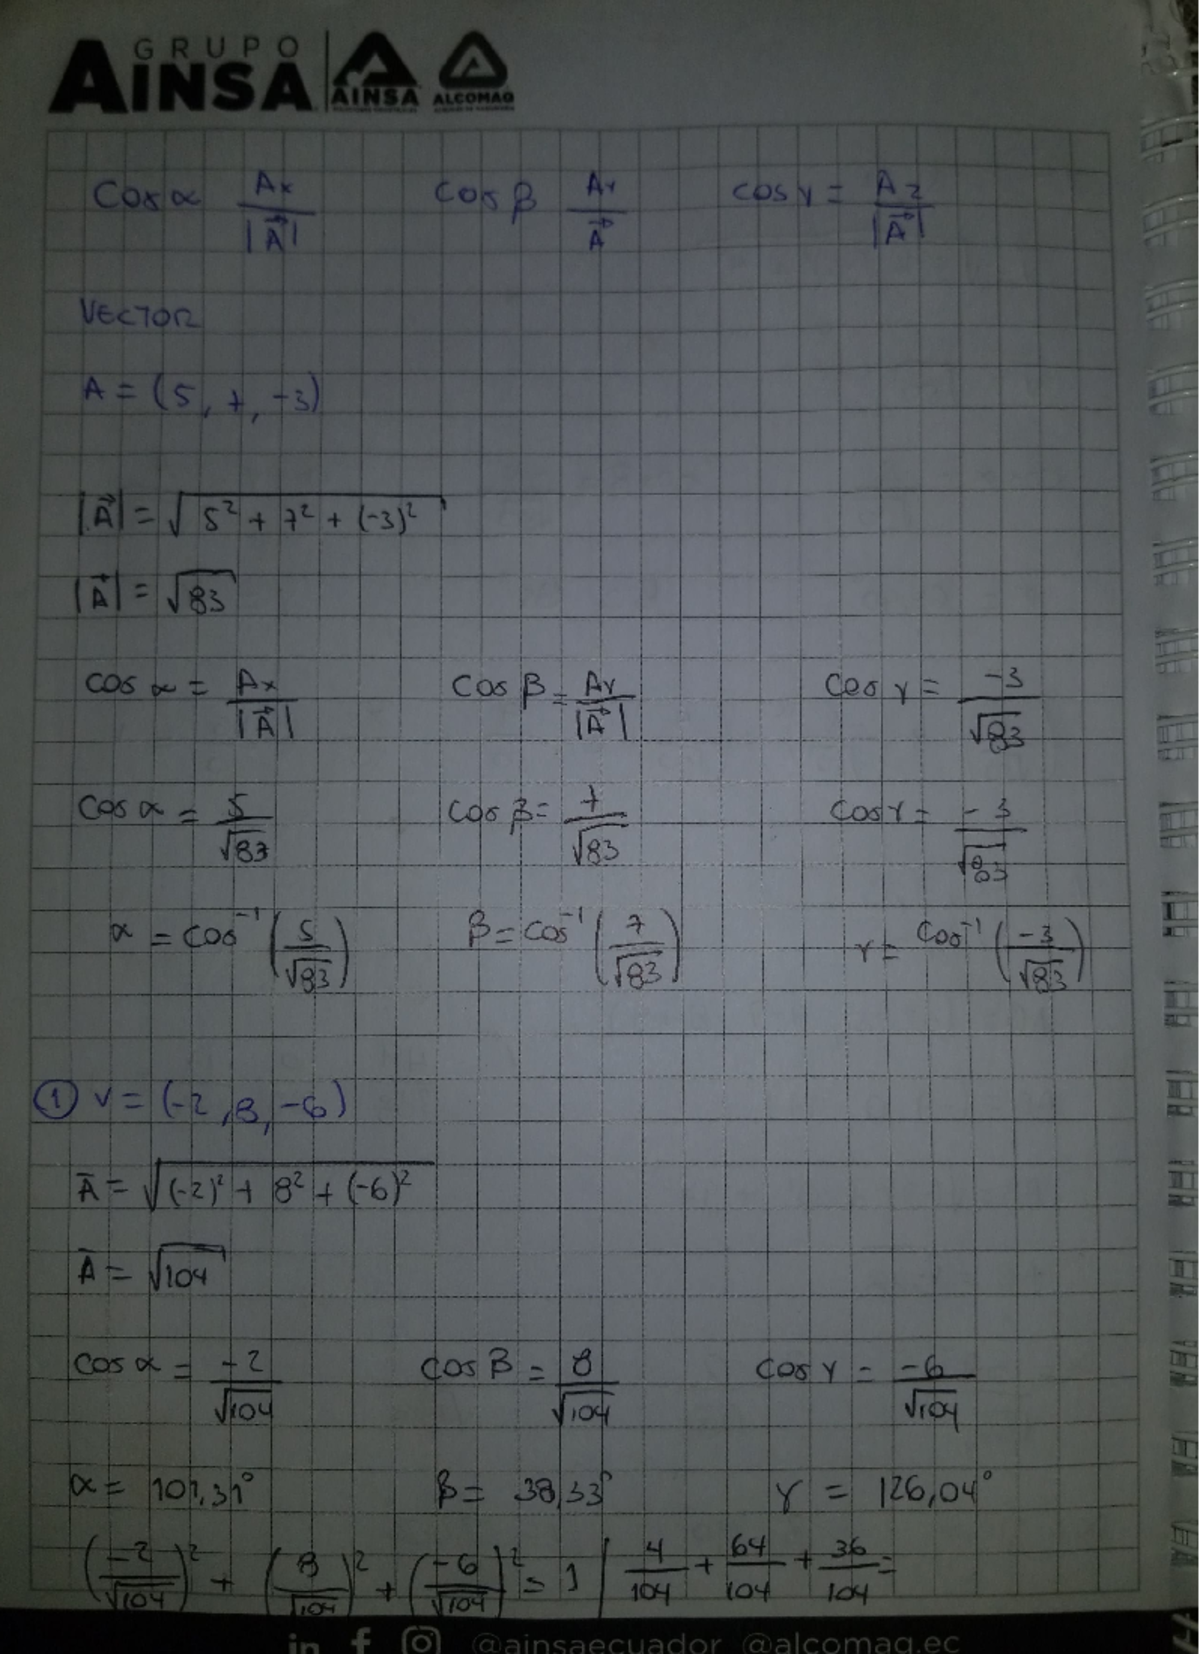 GRUPO
AINSA AINSA ALCOMAQ
Cos α Ax/|A⃗| Cos β Ay/A⃗ cos γ = Az/|A⃗|
VECTOR
A = (5, 7, -3)
|A⃗| = √(5² + 7² + (-3)²)
|A⃗| = √83
cos α = Ax/|A⃗| Cos β = Ay/|A⃗| Cos γ = -3/√83
Cos α = 5/√83 Cos β = 7/√83 Cos γ = -3/√83
α = cos⁻¹(5/√83) β = cos⁻¹(7/√83) γ = cos⁻¹(-3/√83)
① V = (-2, 8, -6)
A̅ = √((-2)² + 8² + (-6)²)
A̅ = √104
cos α = -2/√104 cos β = 8/√104 cos γ = -6/√104
α = 101,31° β = 38,33° γ = 126,04°
(-2/√104)² + (8/√104)² + (-6/√104)² = 1 | 4/104 + 64/104 + 36/104 =
in f @ainsaecuador @alcomaq.ec